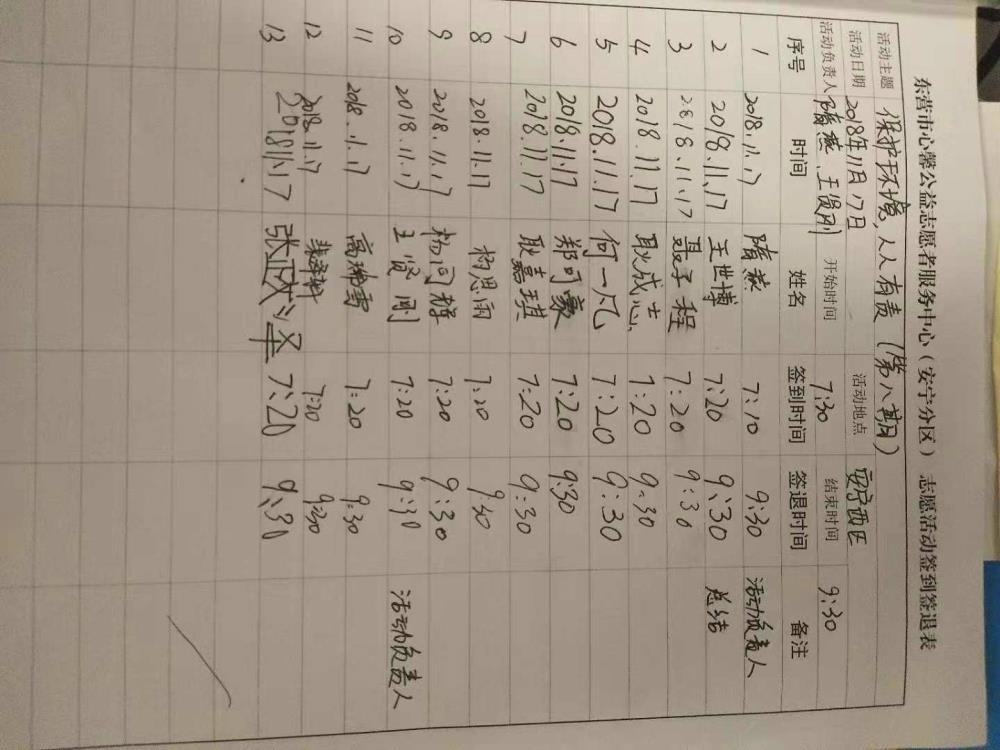 东营市心馨公益志愿者服务中心（安宁分区）志愿活动签到签退表
活动主题 保护环境，人人有责（第八期）
活动日期 2018年11月17日 活动地点 安宁西区
活动负责人 隋燕、王贤刚 开始时间 7:30 结束时间 9:30
序号 时间 姓名 签到时间 签退时间 备注
1 2018.11.17 隋燕 7:10 9:30 活动负责人
2 2018.11.17 王世博 7:20 9:30 总结
3 2018.11.17 聂子程 7:20 9:30
4 2018.11.17 耿成志 7:20 9:30
5 2018.11.17 何一凡 7:20 9:30
6 2018.11.17 郑可豪 7:20 9:30
7 2018.11.17 耿嘉琪 7:20 9:30
8 2018.11.17 杨思雨 7:20 9:30
9 2018.11.17 杨同辉 7:20 9:30
10 2018.11.17 王贤刚 7:20 9:30 活动负责人
11 2018.11.17 高瑞雪 7:20 9:30
12 2018.11.17 7:20 9:30
13 2018.11.17 张政泽 7:20 9:30